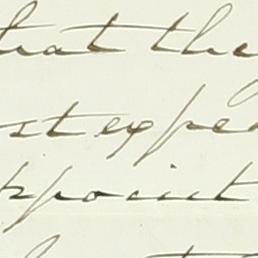 that the
st expe
ppoint